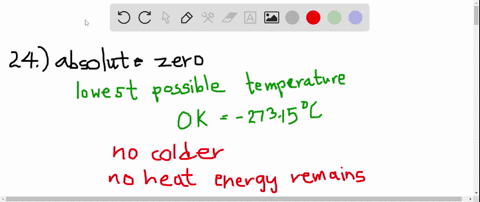 24.) absolute zero
lowest possible temperature
0K = -273.15°C
no colder
no heat energy remains